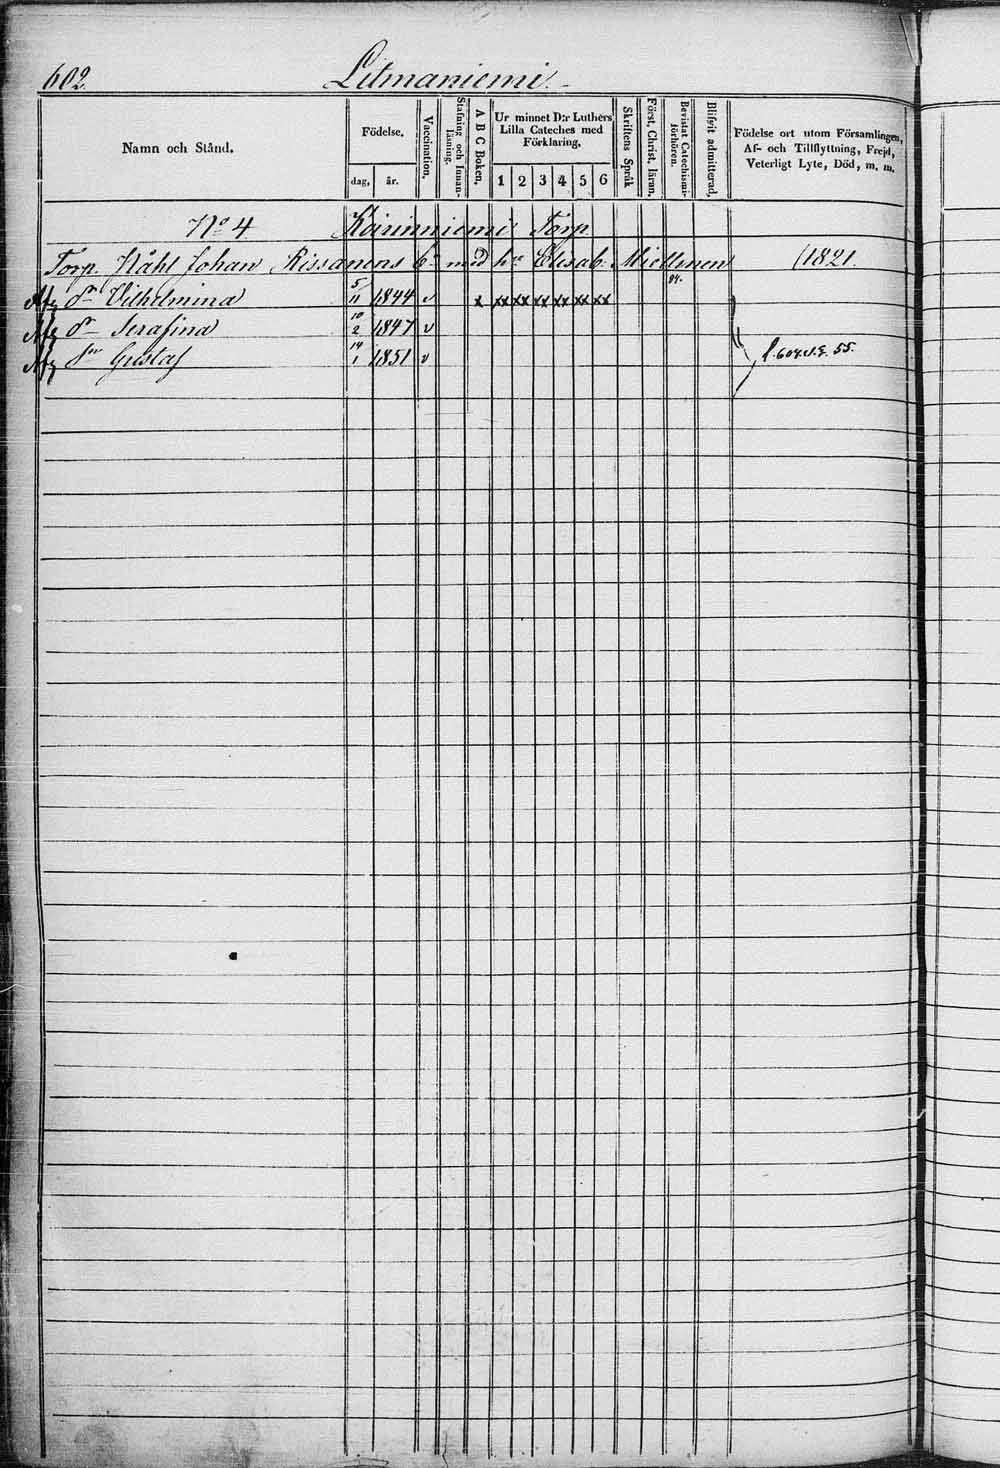 602.
Litmaniemi.
Namn och Stånd.
Födelse.
dag, år.
Vaccination.
Stafning och Innan-läsning.
A B C Boken.
Ur minnet D:r Luthers
Lilla Cateches med
Förklaring.
1 2 3 4 5 6
Skriftens Språk
Först. Christ. läran.
Bevistat Catechumi-förhören.
Blifvit admitterad.
Födelse ort utom Församlingen,
Af- och Tillflyttning, Frejd,
Veterligt Lyte, Död, m. m.
No 4 Torp
Torp. Johan Rissanens bn med hu Elisab. Miettinen (1821.
Afg dr Vilhelmina 5/11 1844 v x xx xx xx xx xx xx
Afg dr Serafina 10/2 1847 v
Afg sn Gustaf 14/1 1851 v 55.